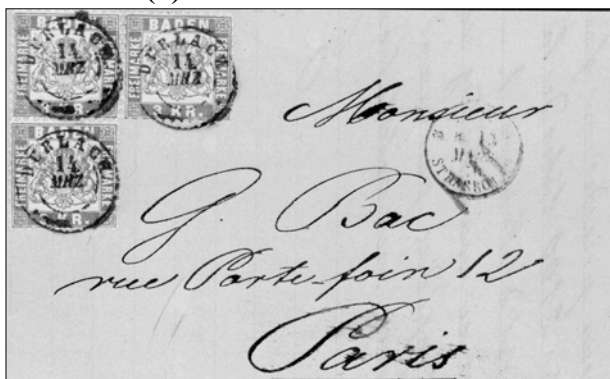 BADEN
FREIMARKE
DURLACH
14
MRZ
BADEN
FREIMARKE
3 KR.
DURLACH
14
MRZ
BADEN
FREIMARKE
KR.
DURLACH
14
MRZ
Monsieur
G. Bac
rue Porte-foin 12
Paris